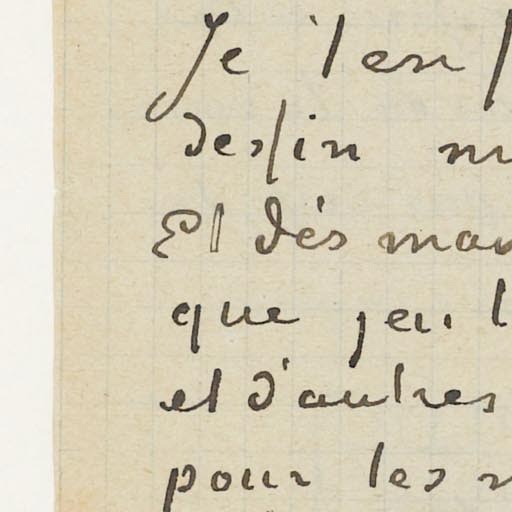 Je t'en
dessin
Et dès
que j'en
et d'autres
pour les